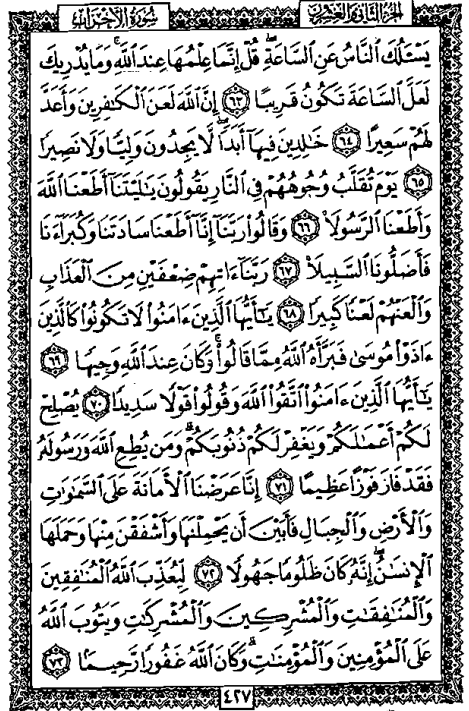 سُورَةُ الأَحْزَابِ
الجُزْءُ الثَّانِي وَالعِشْرُونَ
يَسْـَٔلُكَ ٱلنَّاسُ عَنِ ٱلسَّاعَةِۖ قُلْ إِنَّمَا عِلْمُهَا عِندَ ٱللَّهِۚ وَمَا يُدْرِيكَ
لَعَلَّ ٱلسَّاعَةَ تَكُونُ قَرِيبًا ٦٣ إِنَّ ٱللَّهَ لَعَنَ ٱلْكَٰفِرِينَ وَأَعَدَّ
لَهُمْ سَعِيرًا ٦٤ خَٰلِدِينَ فِيهَآ أَبَدًاۖ لَّا يَجِدُونَ وَلِيًّا وَلَا نَصِيرًا
٦٥ يَوْمَ تُقَلَّبُ وُجُوهُهُمْ فِى ٱلنَّارِ يَقُولُونَ يَٰلَيْتَنَآ أَطَعْنَا ٱللَّهَ
وَأَطَعْنَا ٱلرَّسُولَا۠ ٦٦ وَقَالُوا۟ رَبَّنَآ إِنَّآ أَطَعْنَا سَادَتَنَا وَكُبَرَآءَنَا
فَأَضَلُّونَا ٱلسَّبِيلَا۠ ٦٧ رَبَّنَآ ءَاتِهِمْ ضِعْفَيْنِ مِنَ ٱلْعَذَابِ
وَٱلْعَنْهُمْ لَعْنًا كَبِيرًا ٦٨ يَٰٓأَيُّهَا ٱلَّذِينَ ءَامَنُوا۟ لَا تَكُونُوا۟ كَٱلَّذِينَ
ءَاذَوْا۟ مُوسَىٰ فَبَرَّأَهُ ٱللَّهُ مِمَّا قَالُوا۟ۚ وَكَانَ عِندَ ٱللَّهِ وَجِيهًا ٦٩
يَٰٓأَيُّهَا ٱلَّذِينَ ءَامَنُوا۟ ٱتَّقُوا۟ ٱللَّهَ وَقُولُوا۟ قَوْلًا سَدِيدًا ٧٠ يُصْلِحْ
لَكُمْ أَعْمَٰلَكُمْ وَيَغْفِرْ لَكُمْ ذُنُوبَكُمْۗ وَمَن يُطِعِ ٱللَّهَ وَرَسُولَهُۥ
فَقَدْ فَازَ فَوْزًا عَظِيمًا ٧١ إِنَّا عَرَضْنَا ٱلْأَمَانَةَ عَلَى ٱلسَّمَٰوَٰتِ
وَٱلْأَرْضِ وَٱلْجِبَالِ فَأَبَيْنَ أَن يَحْمِلْنَهَا وَأَشْفَقْنَ مِنْهَا وَحَمَلَهَا
ٱلْإِنسَٰنُۖ إِنَّهُۥ كَانَ ظَلُومًا جَهُولًا ٧٢ لِّيُعَذِّبَ ٱللَّهُ ٱلْمُنَٰفِقِينَ
وَٱلْمُنَٰفِقَٰتِ وَٱلْمُشْرِكِينَ وَٱلْمُشْرِكَٰتِ وَيَتُوبَ ٱللَّهُ
عَلَى ٱلْمُؤْمِنِينَ وَٱلْمُؤْمِنَٰتِۗ وَكَانَ ٱللَّهُ غَفُورًا رَّحِيمًا ٧٣
٤٢٧